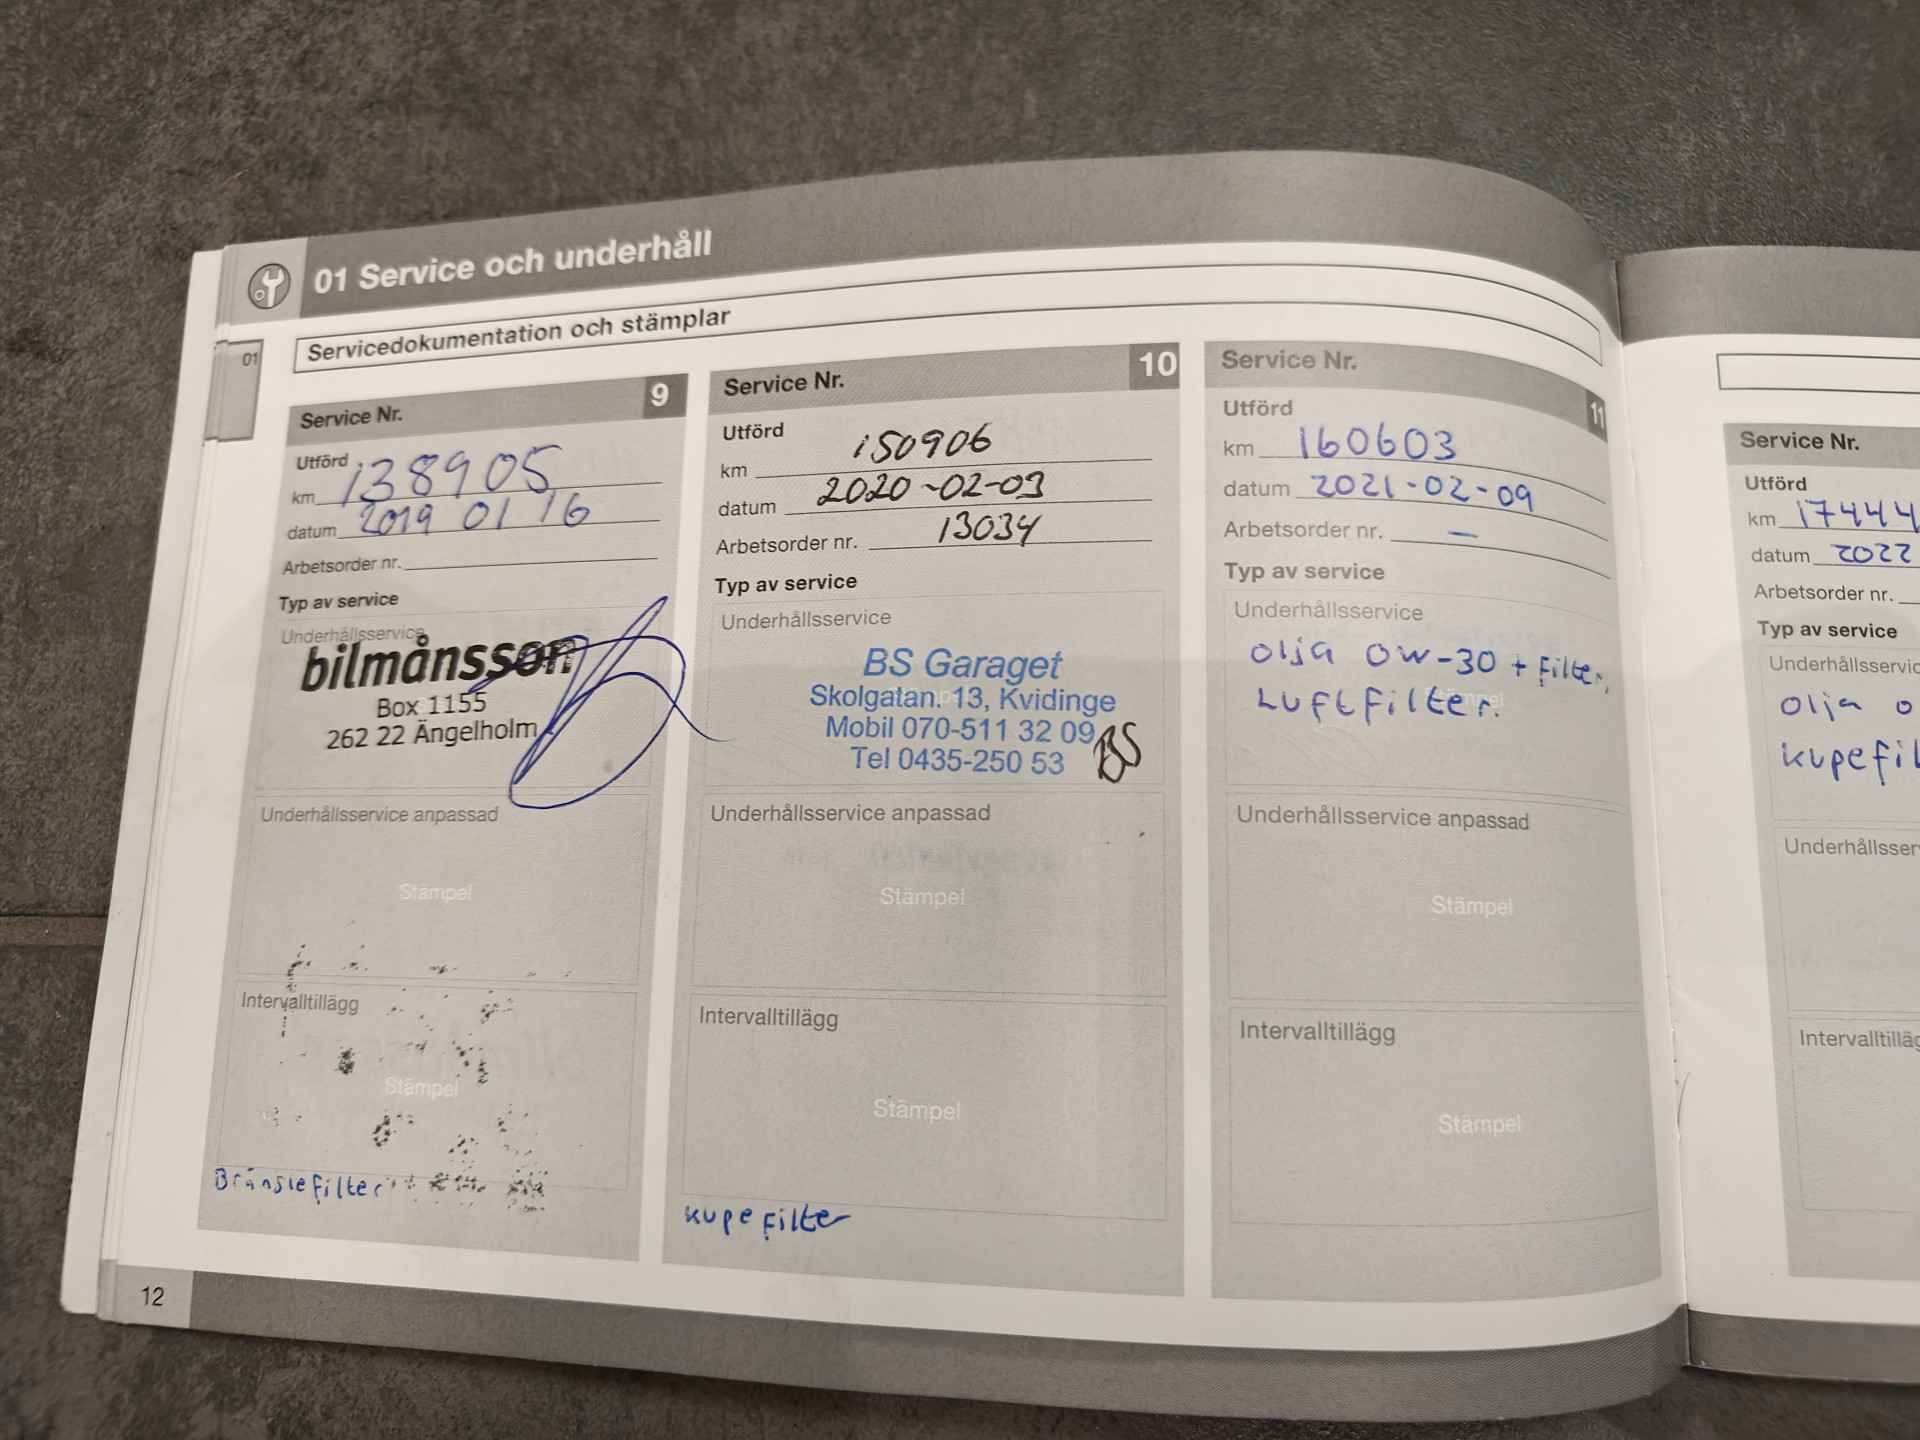 01 Service och underhåll
Servicedokumentation och stämplar
01
Service Nr. 9
Utförd
km 138905
datum 2019 01 16
Arbetsorder nr.
Typ av service
Underhållsservice
bilmånsson
Box 1155
262 22 Ängelholm
Underhållsservice anpassad
Stämpel
Intervalltillägg
Stämpel
Bränslefilter
Service Nr. 10
Utförd
km 150906
datum 2020-02-03
Arbetsorder nr. 13034
Typ av service
Underhållsservice
BS Garaget
Skolgatan. 13, Kvidinge
Mobil 070-511 32 09
Tel 0435-250 53
BS
Underhållsservice anpassad
Stämpel
Intervalltillägg
Stämpel
Kupefilter
Service Nr. 11
Utförd
km 160603
datum 2021-02-09
Arbetsorder nr. —
Typ av service
Underhållsservice
Olja 0w-30 + Filter,
Luftfilter.
Stämpel
Underhållsservice anpassad
Stämpel
Intervalltillägg
Stämpel
12
Service Nr.
Utförd
km 17444
datum 2022
Arbetsorder nr.
Typ av service
Underhållsservic
Olja 0
Kupefil
Underhållsser
Intervalltilläg